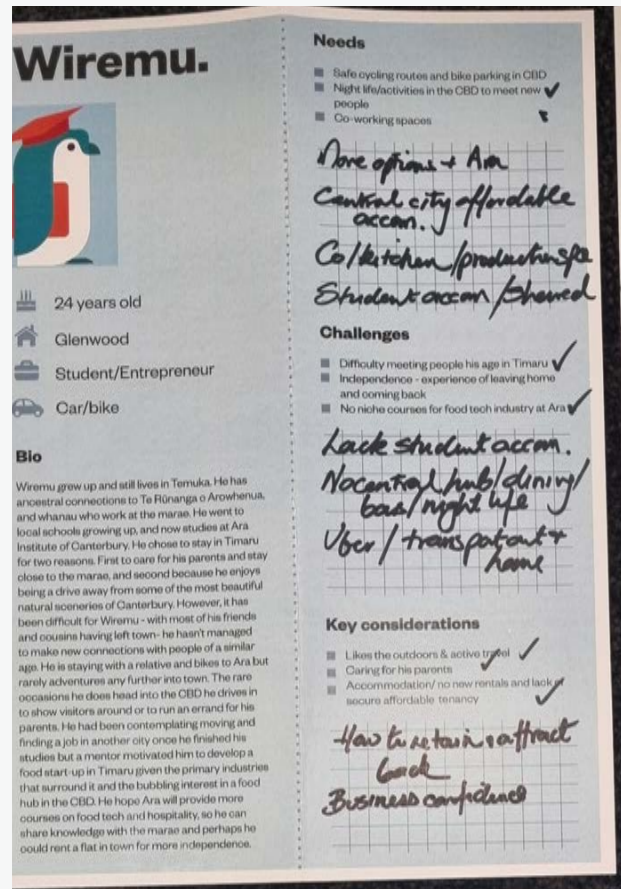 Wiremu.
24 years old
Glenwood
Student/Entrepreneur
Car/bike
Bio
Wiremu grew up and still lives in Temuka. He has
ancestral connections to Te Rūnanga o Arowhenua,
and whanau who work at the marae. He went to
local schools growing up, and now studies at Ara
Institute of Canterbury. He chose to stay in Timaru
for two reasons. First to care for his parents and stay
close to the marae, and second because he enjoys
being a drive away from some of the most beautiful
natural sceneries of Canterbury. However, it has
been difficult for Wiremu - with most of his friends
and cousins having left town- he hasn't managed
to make new connections with people of a similar
age. He is staying with a relative and bikes to Ara but
rarely adventures any further into town. The rare
occasions he does head into the CBD he drives in
to show visitors around or to run an errand for his
parents. He had been contemplating moving and
finding a job in another city once he finished his
studies but a mentor motivated him to develop a
food start-up in Timaru given the primary industries
that surround it and the bubbling interest in a food
hub in the CBD. He hope Ara will provide more
courses on food tech and hospitality, so he can
share knowledge with the marae and perhaps he
could rent a flat in town for more independence.
Needs
Safe cycling routes and bike parking in CBD
Night life/activities in the CBD to meet new
people
Co-working spaces
More options + Ara
Central city affordable
accom.
Co/kitchen/production
Student accom/Shared
Challenges
Difficulty meeting people his age in Timaru
Independence - experience of leaving home
and coming back
No niche courses for food tech industry at Ara
Lack student accom.
No central hub/dining/
bars/night life
Uber/ out +
home
Key considerations
Likes the outdoors & active travel
Caring for his parents
Accommodation/ no new rentals and lack of
secure affordable tenancy
How to retain attract
back
Business confidence